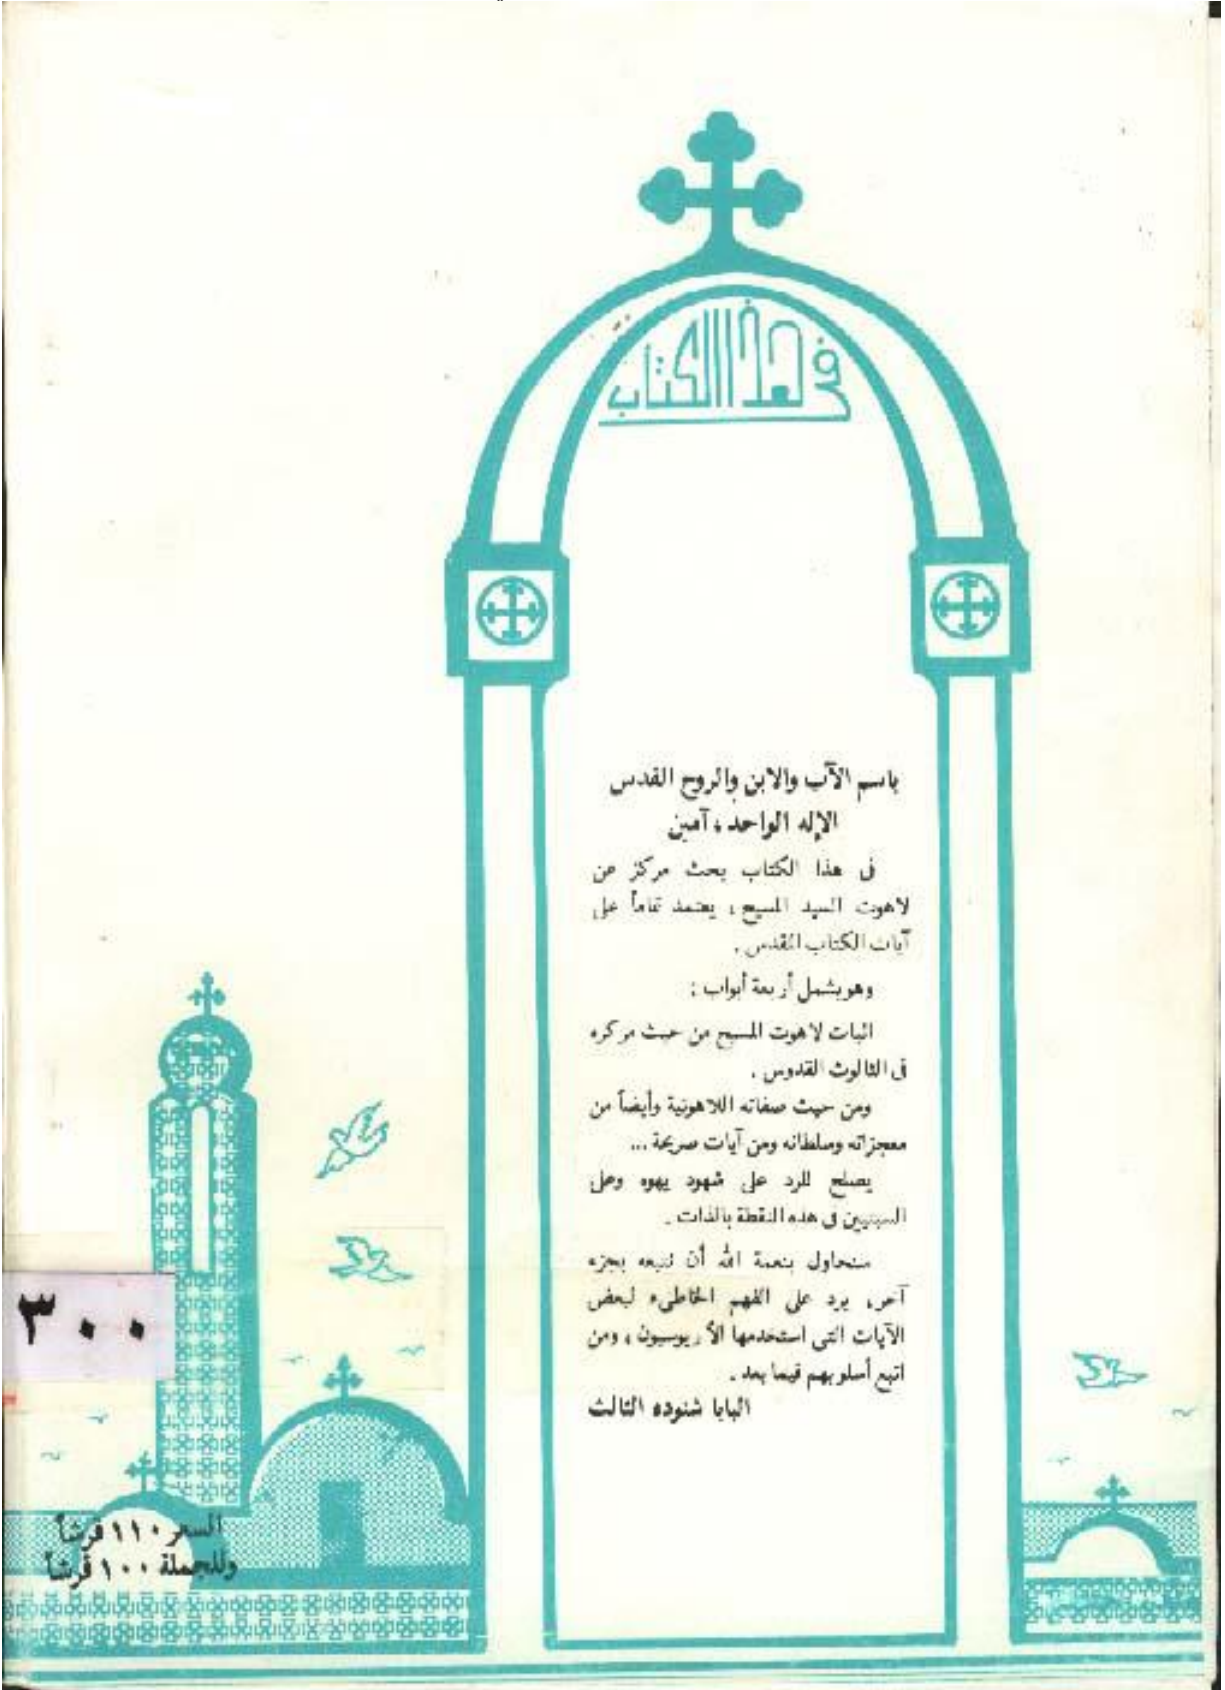 فى هذا الكتاب
باسم الآب والابن والروح القدس
الإله الواحد ، آمين
فى هذا الكتاب بحث مركز عن
لاهوت السيد المسيح ، يعتمد تماماً على
آيات الكتاب المقدس .
وهو يشمل أربعة أبواب :
اثبات لاهوت المسيح من حيث مركزه
فى الثالوث القدوس .
ومن حيث صفاته اللاهوتية وأيضاً من
معجزاته وسلطانه ومن آيات صريحة ...
يصلح للرد على شهود يهوه وعلى
السبتيين فى هذه النقطة بالذات .
سنحاول بنعمة الله أن نتبعه بجزء
آخر ، يرد على الفهم الخاطىء لبعض
الآيات التى استخدمها الأريوسيون ، ومن
اتبع أسلوبهم فيما بعد .
البابا شنوده الثالث
٣٠٠
السعر ١١٠ قرشاً
وللجملة ١٠٠ قرشاً